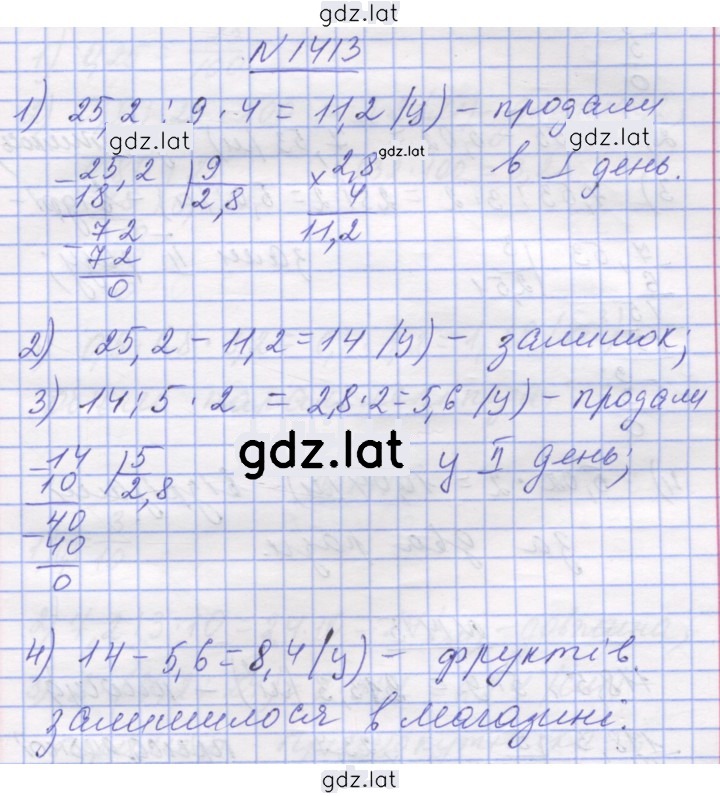 gdz.lat
N 1413
1) 25,2 : 9 · 4 = 11,2 (ц) – продали
gdz.lat
gdz.lat
в I день.
– 25,2 | 9
18 | 2,8
– 72
72
0
× 2,8
4
11,2
2) 25,2 – 11,2 = 14 (ц) – залишок;
3) 14 : 5 · 2 = 2,8 · 2 = 5,6 (ц) – продали
gdz.lat
у II день;
– 14 | 5
10 | 2,8
– 40
40
0
4) 14 – 5,6 = 8,4 (ц) – фруктів
залишилося в магазині.
gdz.lat